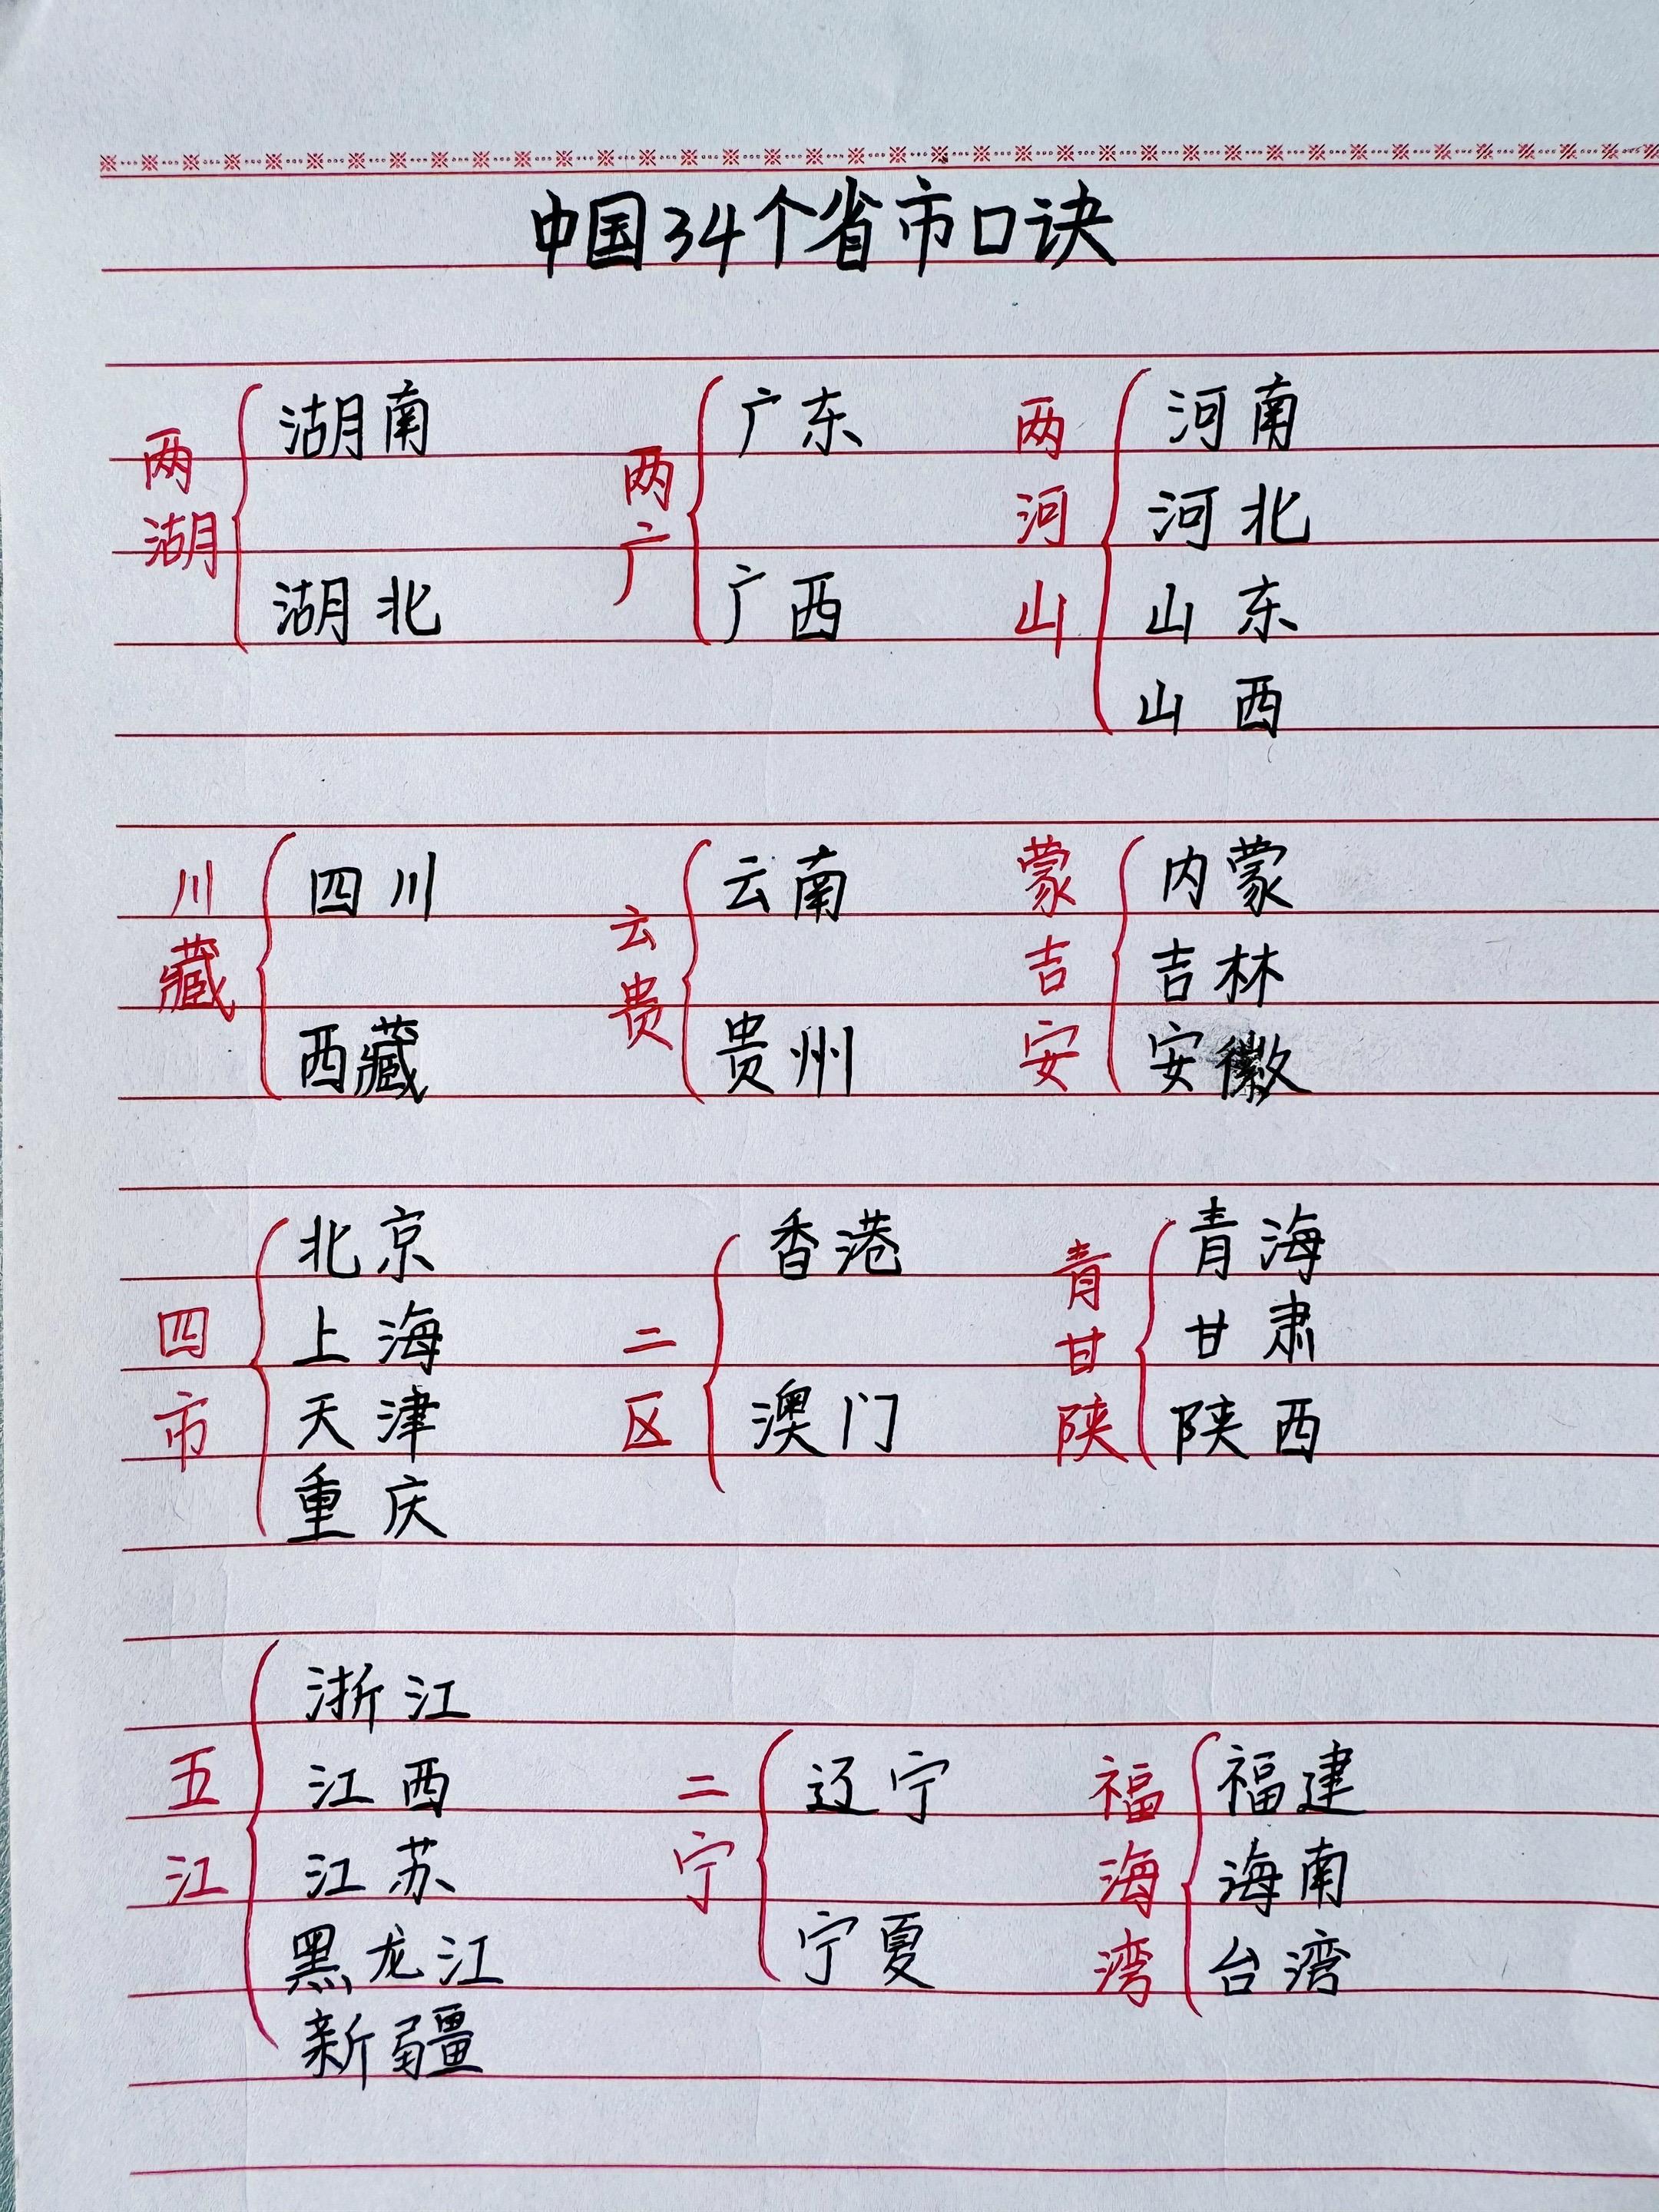 中国34个省市口诀
两湖
湖南
湖北
两广
广东
广西
两河山
河南
河北
山东
山西
川藏
四川
西藏
云贵
云南
贵州
蒙吉安
内蒙
吉林
安徽
四市
北京
上海
天津
重庆
二区
香港
澳门
青甘陕
青海
甘肃
陕西
五江
浙江
江西
江苏
黑龙江
新疆
二宁
辽宁
宁夏
福海湾
福建
海南
台湾